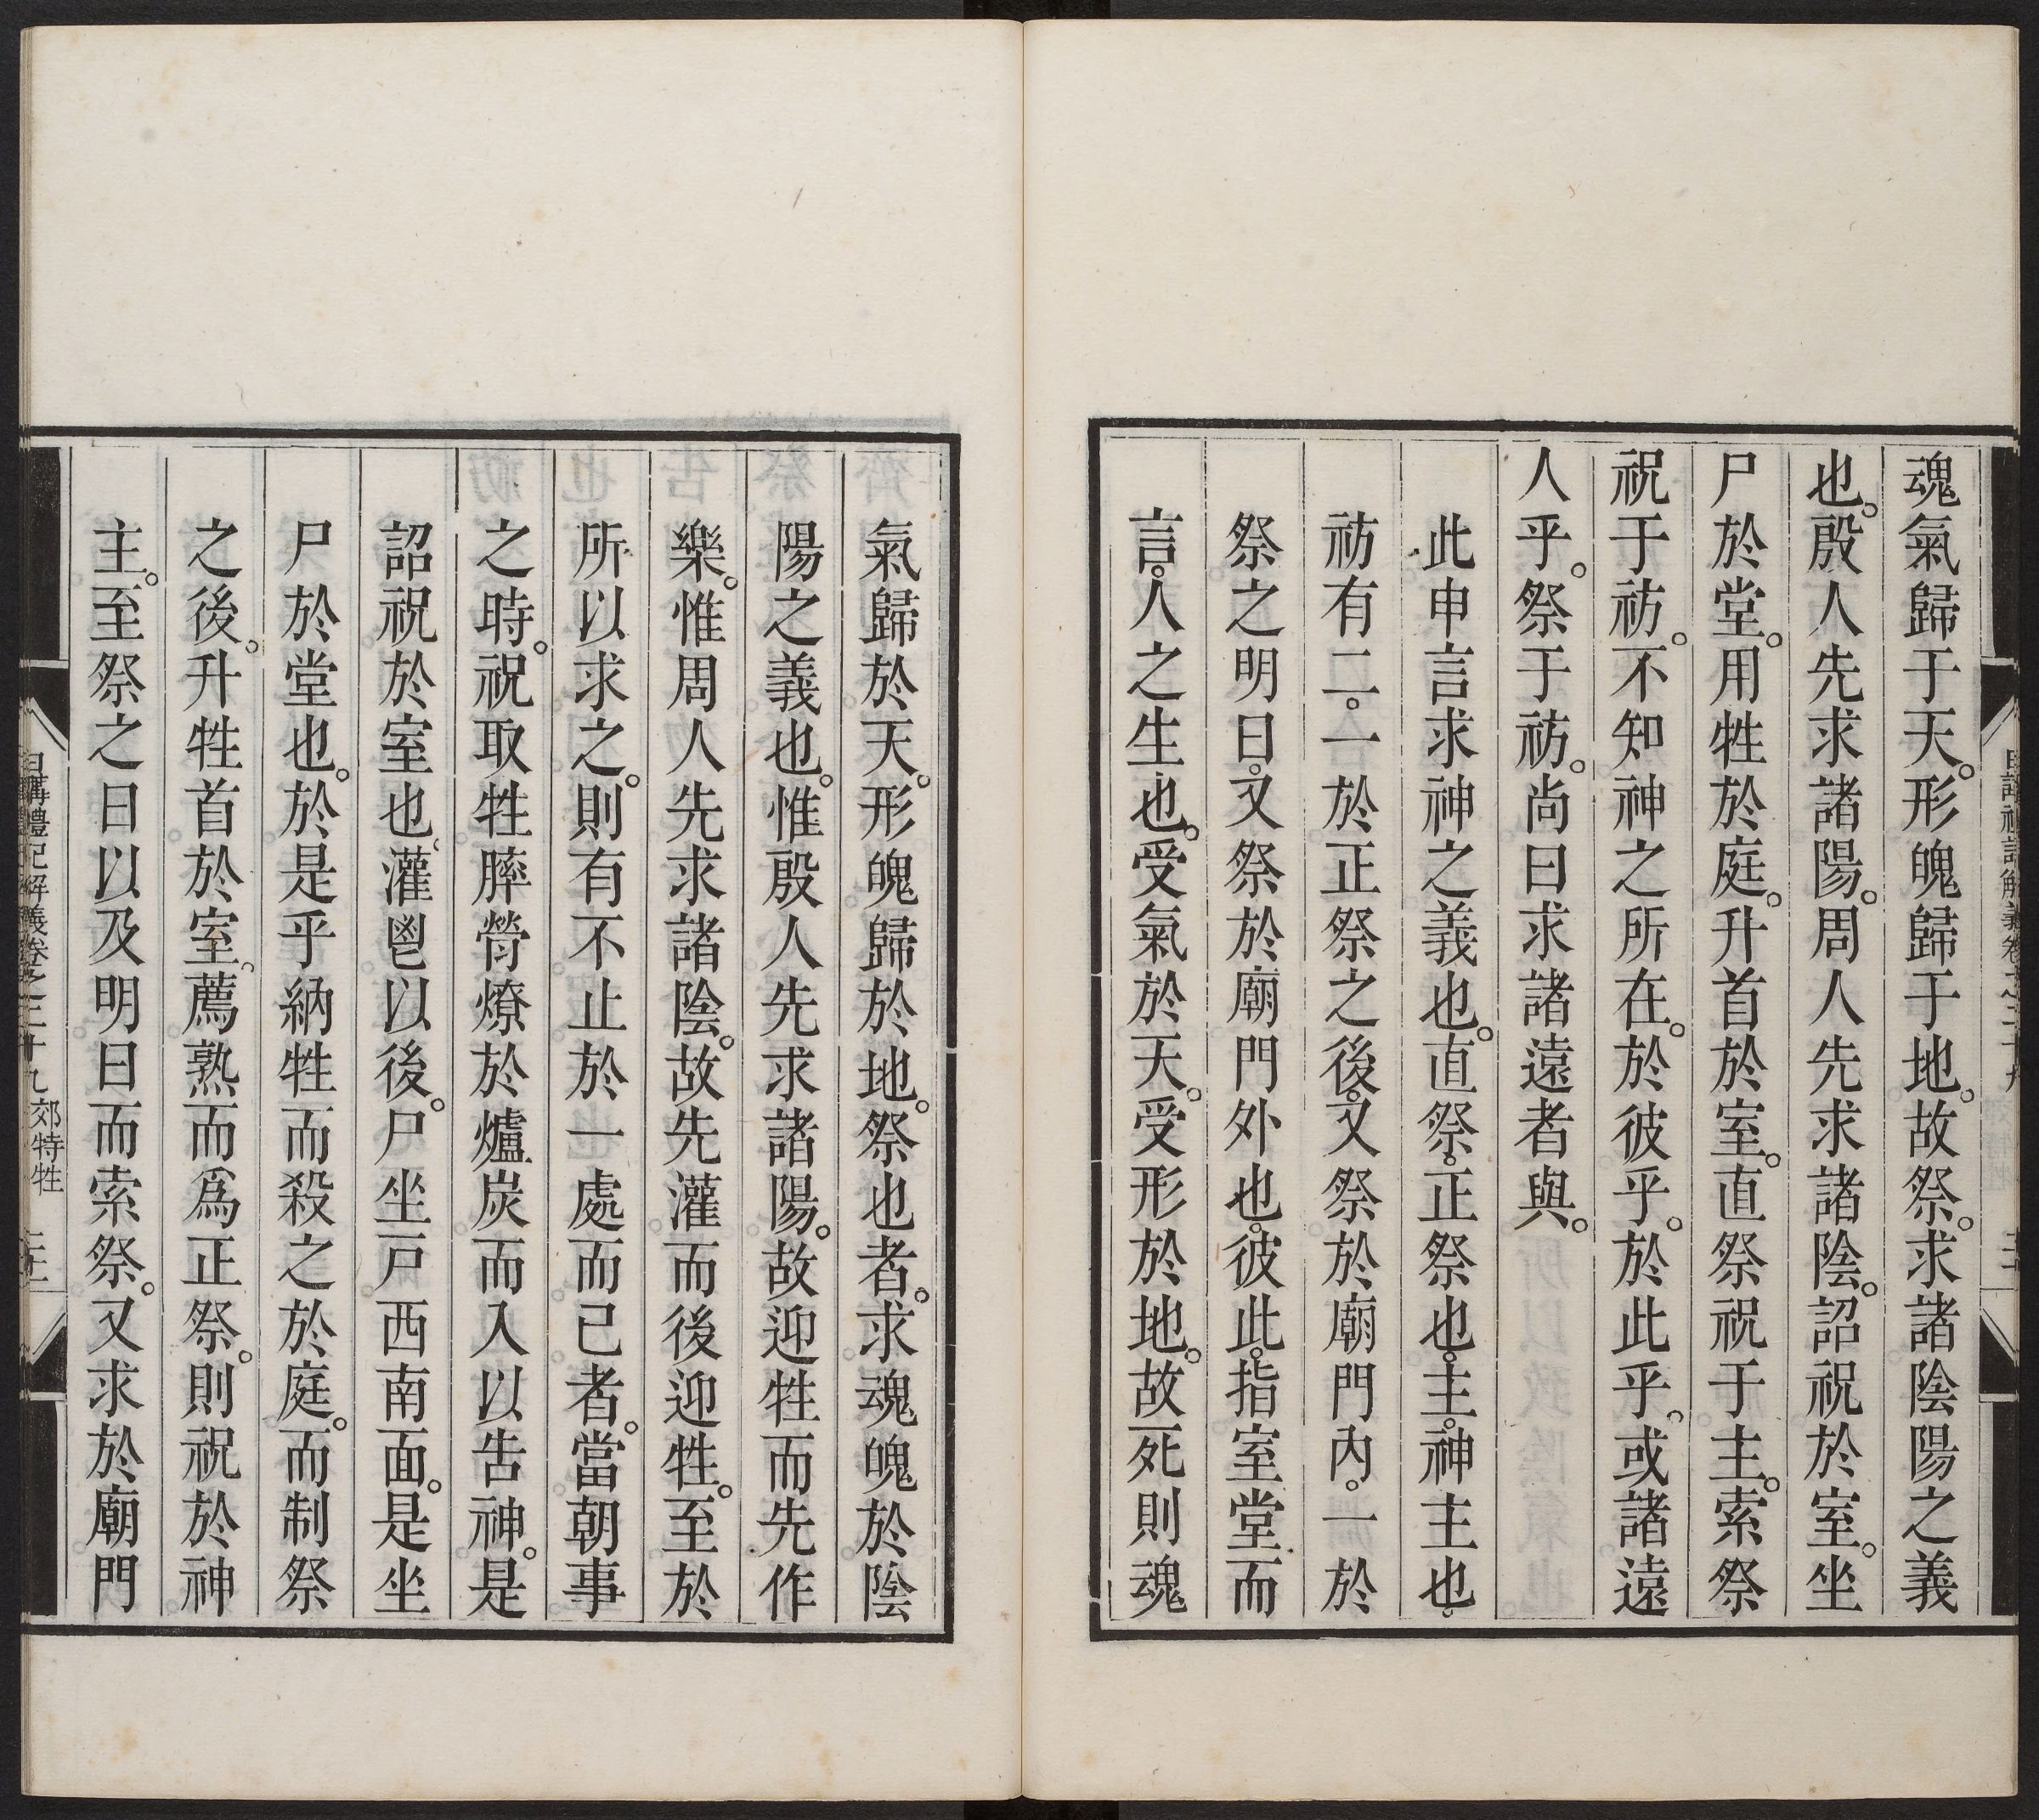 魂氣歸于天。形魄歸于地。故祭。求諸陰陽之義
也。殷人先求諸陽。周人先求諸陰。詔祝於室。坐
尸於堂。用牲於庭。升首於室。直祭祝于主。索祭
祝于祊。不知神之所在。於彼乎。於此乎。或諸遠
人乎。祭于祊。尚曰求諸遠者與。
此申言求神之義也。直祭。正祭也。主。神主也。
祊有二。一於正祭之後。又祭於廟門內。一於
祭之明日。又祭於廟門外也。彼此。指室堂而
言。人之生也。受氣於天。受形於地。故死則魂
氣歸於天。形魄歸於地。祭也者。求魂魄於陰
陽之義也。惟殷人先求諸陽。故迎牲而先作
樂。惟周人先求諸陰。故先灌而後迎牲。至於
所以求之。則有不止於一處而已者。當朝事
之時。祝取牲膟膋燎於爐炭而入以告神。是
詔祝於室也。灌鬯以後。尸坐戸西南面。是坐
尸於堂也。於是乎納牲而殺之於庭。而制祭
之後。升牲首於室。薦熟而爲正祭。則祝於神
主。至祭之日以及明日而索祭。又求於廟門
日講禮記解義卷之三十九 郊特牲